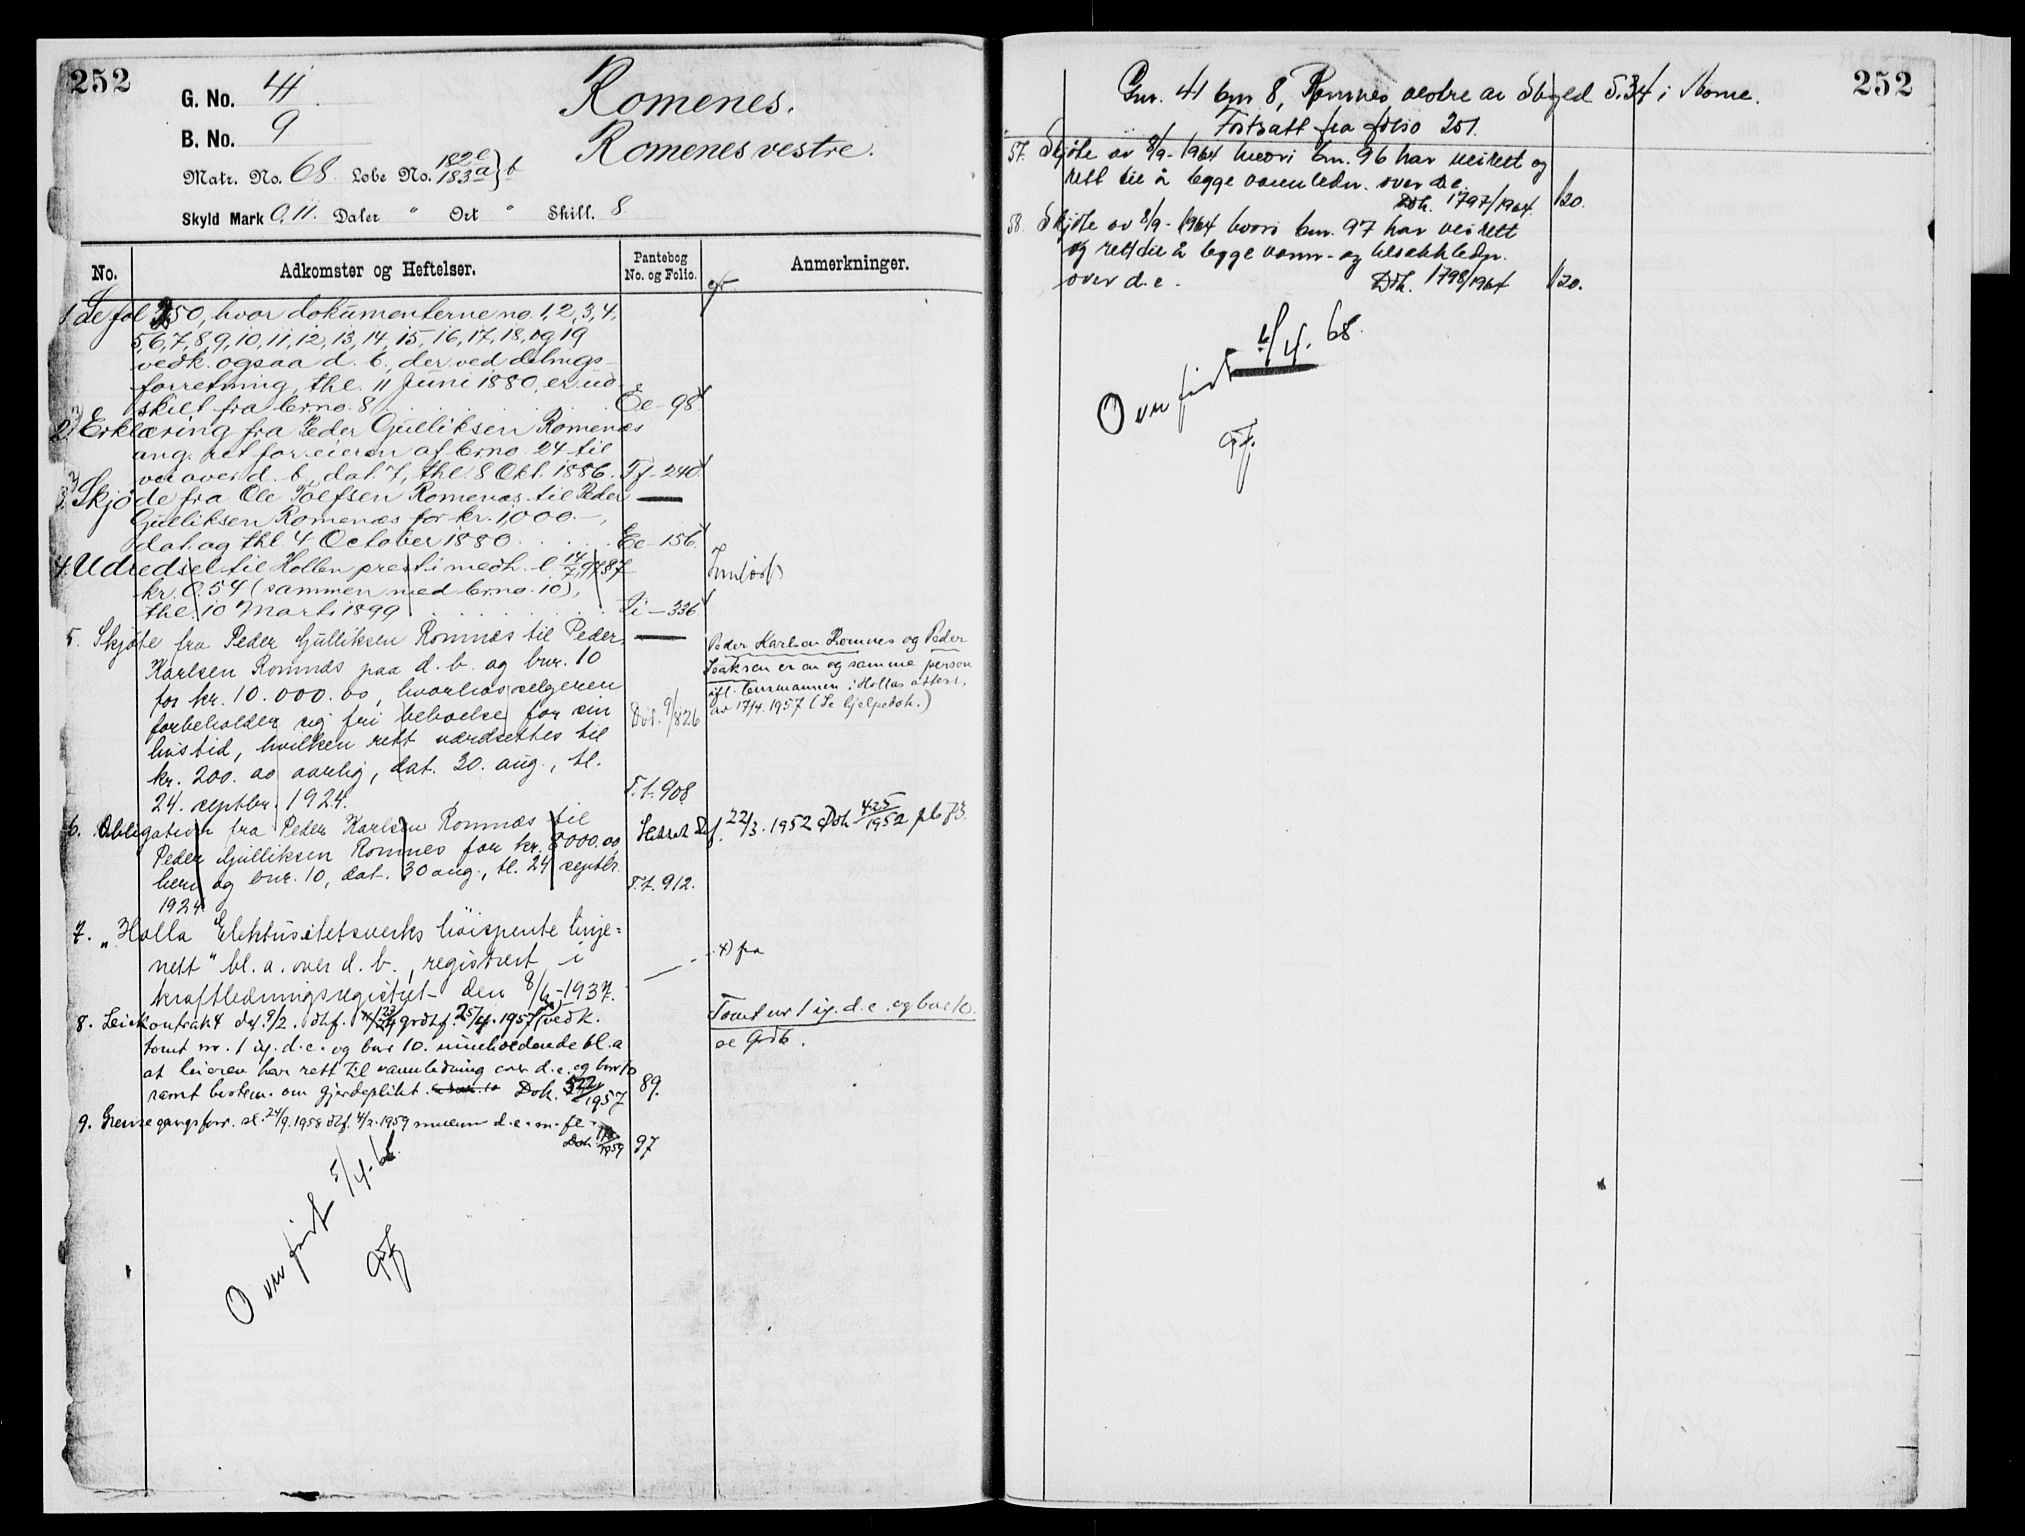 252
G. No. 41
B. No. 9
Matr. No. 68 Løbe No. 182e 183a } b
Skyld Mark 0.11. Daler " Ort " Skill. 8
Romenes.
Romenes vestre.
No.
Adkomster og Heftelser.
Pantebog No. og Folio.
Anmerkninger.
1. Se fol 250, hvor dokumenterne no. 1, 2, 3, 4,
5, 6, 7, 8, 9, 10, 11, 12, 13, 14, 15, 16, 17, 18, og 19
vedk. ogsaa d. b., der ved delings-
forretning, thl. 11 Juni 1880, er ud-
skilt fra brno. 8 Ee - 98
2. Erklæring fra Peder Gulliksen Romenæs
ang. ret for eieren af brno. 24 til
vei over d. b., dat. 7, thl. 8 Okt. 1886. Ff - 240
3. Skjøde fra Ole Tolfsen Romenæs til Peder
Gulliksen Romenæs for kr. 1,000.-,
dat. og thl 4 October 1880 Ee - 156
4. Udredsel til Hollen prest i medh. l. 14/7 1787
kr. 0.54 (sammen med brno. 10),
thl. 10 Marts 1899 Ii - 336
Innløst
5. Skjøte fra Peder Gulliksen Romnæs til Peder
Karlsen Romnæs paa d. b. og bnr. 10
for kr. 10.000.00, hvorhos selgeren
forbeholder sig fri beboelse for sin
livstid, hvilken rett værdsettes til
kr. 200.00 aarlig, dat. 30. aug., tl.
24. septbr. 1924. F.f. 908
Peder Karlsen Romnes og Peder
Isaksen er en og samme person
ifl. lensmannen i Hollas attest.
av 17/4. 1957 (Se hjelpedok.)
6. Obligation fra Peder Karlsen Romnæs til
Peder Gulliksen Romnes for kr. 8000.00,
heri og bnr. 10, dat. 30 aug., tl. 24 septbr.
1924 F.f. 912.
Slettet 22/3. 1952 Dok 425/1952
7. "Holla Elektrisitetsverks høispente linje=
nett" bl. a. over d. b., registrert i
kraftledningsregistret den 8/6-1937.
8. Leiekontrakt dat. 9/2. 25/4. 1957 vedk.
tomt nr. 1 d. e. og bnr 10. inneholdende bl. a
at leieren har rett til vannledning over d. e. og bnr 10
samt bestem. om gjerdeplikt. Dok. 522/1957 89.
Tomt nr 1 d. e. og bnr 10.
se Grdb.
9. Grensegangsforr. 24/9. 1958 1959 mellem d. e. m. fl.
Dok. 1959 97
Overført 5/4. 68
252
Gnr. 41 bnr 8, Romnes vestre av Skyld 5.34 i Nome.
Fortsatt fra folio 251.
57. Skjøte av 8/9-1964 hvori bnr. 96 har veirett og
rett til å legge vannledn. over d. e.
Dok. 1797/1964. 120.
58. Skjøte av 8/9-1964 hvori bnr. 97 har veirett
og rett til å legge vann- og kloakkledn.
over d. e. Dok. 1798/1964 120.
Overført 6/4. 68.